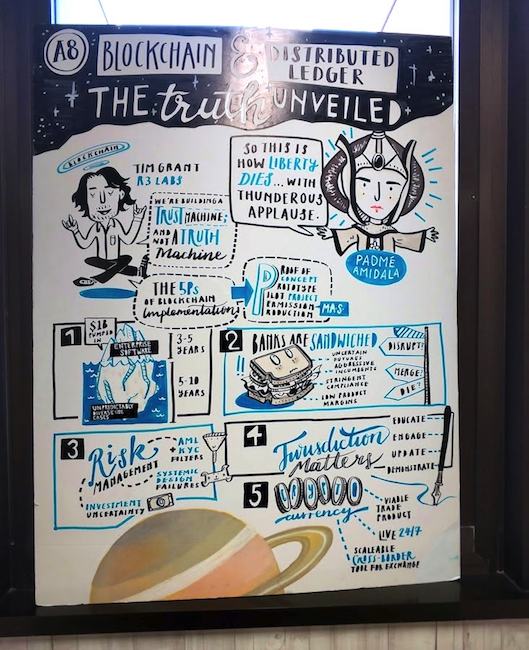 A8
BLOCKCHAIN & DISTRIBUTED
LEDGER
THE truth UNVEILED
BLOCKCHAIN
TIM GRANT
R3 LABS
WE'RE BUILDING A
TRUST MACHINE;
AND NOT A TRUTH
Machine
SO THIS IS
HOW LIBERTY
DIES... WITH
THUNDEROUS
APPLAUSE.
PADME
AMIDALA
THE 5Ps
OF BLOCKCHAIN
Implementation
PROOF OF
CONCEPT
PROTOTYPE
PILOT PROJECT
PERMISSION
PRODUCTION
MAS
1
$1B
PUMPED
IN
ENTERPRISE
SOFTWARE
3-5
YEARS
5-10
YEARS
UNPREDICTABLY
DIVERSE USE
CASES
2
BANKS ARE SANDWICHED
UNCERTAIN
FUTURES
AGGRESSIVE
INCUMBENTS
STRINGENT
COMPLIANCE
LOW PRODUCT
MARGINS
DISRUPT?
MERGE?
DIE?
3
Risk
MANAGEMENT
AML
+ KYC
FILTERS
SYSTEMIC
DESIGN
FAILURES
INVESTMENT
UNCERTAINTY
4
Jurisdiction
Matters
EDUCATE
ENGAGE
UPDATE
DEMONSTRATE
5
currency
VIABLE
TRADE
PRODUCT
LIVE 24/7
SCALEABLE
CROSS-BORDER
TOOL FOR EXCHANGE